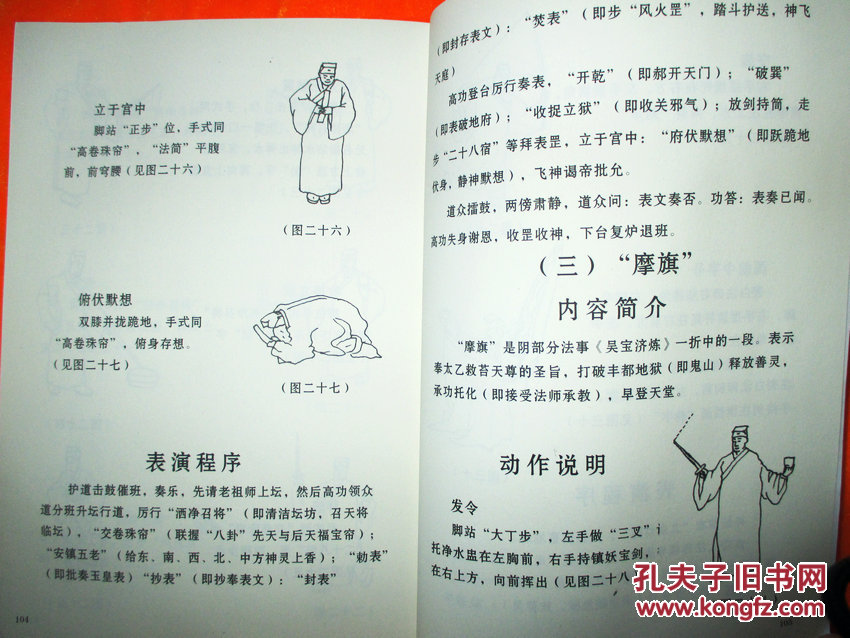 立于宫中
脚站“正步”位，手式同
“高卷珠帘”，“法简”平腹
前，前穹腰（见图二十六）
（图二十六）
俯伏默想
双膝并拢跪地，手式同
“高卷珠帘”，俯身存想。
（见图二十七）
（图二十七）
表演程序
护道击鼓催班，奏乐，先请老祖师上坛，然后高功领众
道分班升坛行道，厉行“洒净召将”（即清洁坛坊，召天将
临坛），“交卷珠帘”（联握“八卦”先天与后天福宝帘）；
“安镇五老”（给东、南、西、北、中方神灵上香）；“勅表”
（即批奏玉皇表）“抄表”（即抄奉表文）：“封表”
104
（即封存表文）：“焚表”（即步“风火罡”，踏斗护送，神飞
天庭）
高功登台厉行奏表，“开乾”（即郝开天门）；“破巽”
（即表破地府）；“收捉立狱”（即收关邪气）；放剑持简，走
步“二十八宿”等拜表罡，立于宫中：“府伏默想”（即跃跪地
伏身，静神默想），飞神谒帝批允。
道众擂鼓，两傍肃静，道众问：表文奏否。功答：表奏已闻。
高功失身谢恩，收罡收神，下台复炉退班。
（三）“摩旗”
内容简介
“摩旗”是阴部分法事《吴宝济炼》一折中的一段。表示
奉太乙救苔天尊的圣旨，打破丰都地狱（即鬼山）释放善灵，
承功托化（即接受法师承教），早登天堂。
动作说明
发令
脚站“大丁步”，左手做“三叉”
托净水盅在左胸前，右手持镇妖宝剑，
在右上方，向前挥出（见图二十八
105
孔夫子旧书网
www.kongfz.com